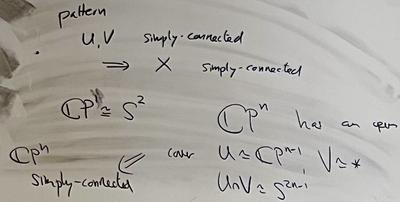 pattern
U, V simply-connected
⇒ X simply-connected
ℂP¹ ≅ S²
ℂPⁿ has an open
cover U ≃ ℂPⁿ⁻¹, V ≃ *
U∩V ≃ S²ⁿ⁻¹
⇐
ℂPⁿ
simply-connected